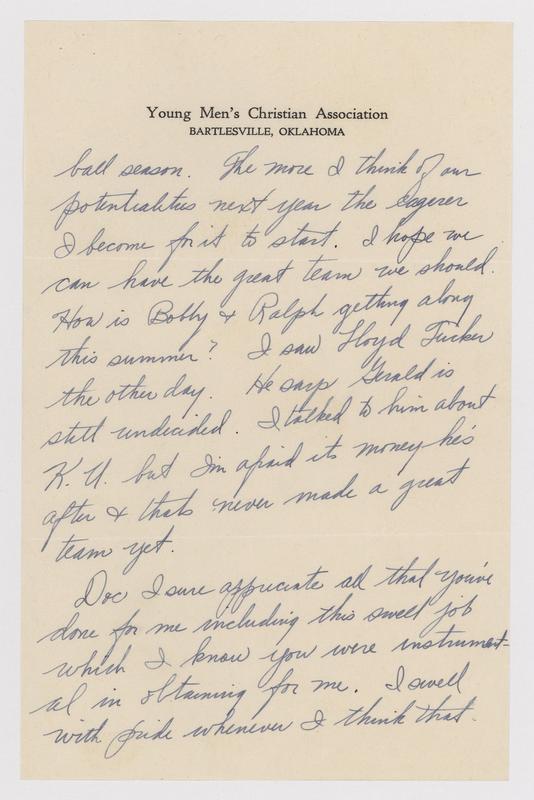 Young Men's Christian Association
BARTLESVILLE, OKLAHOMA
ball season. The more I think of our
potentialities next year the eagerer
I become for it to start. I hope we
can have the great team we should.
How is Bobby & Ralph getting along
this summer? I saw Lloyd Tucker
the other day. He says Gerald is
still undecided. I talked to him about
K.U. but I'm afraid its money he's
after & thats never made a great
team yet.
Doc I sure appreciate all that you've
done for me including this swell job
which I know you were instrument-
al in obtaining for me. I swell
with pride whenever I think that